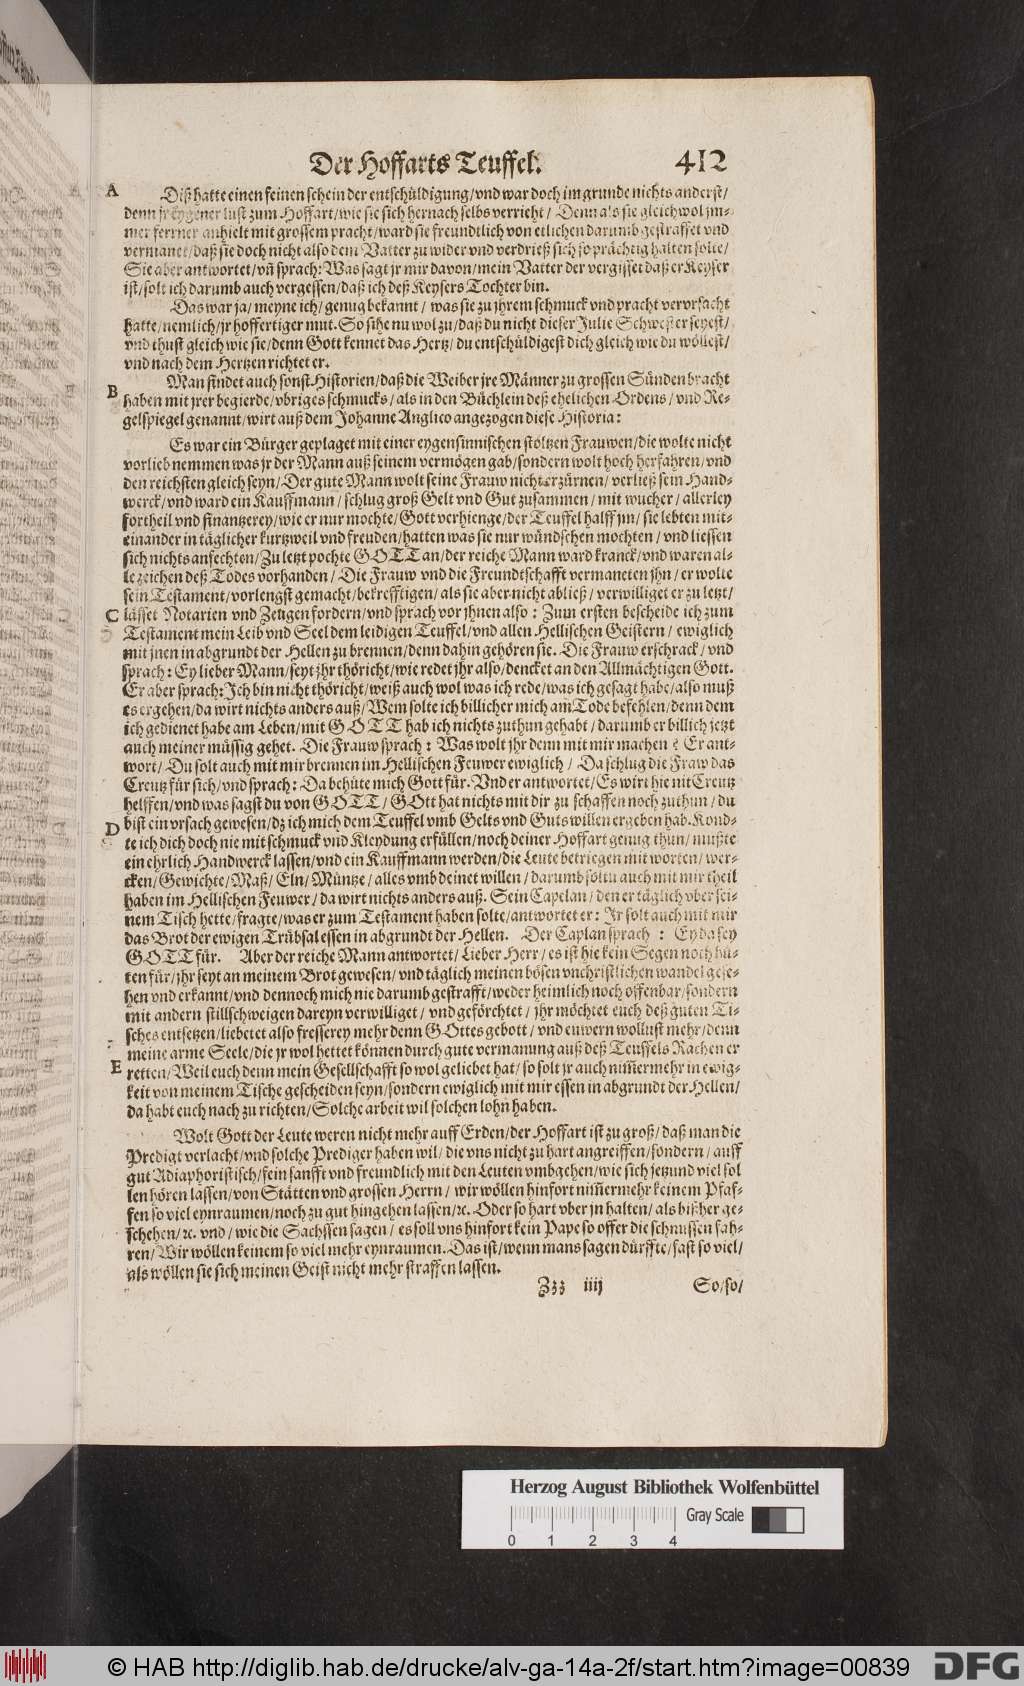 Der Hoffarts Teuffel. 412
A
Diß hatte einen feinen schein der entschüldigung/vnd war doch im grunde nichts anderst/
denn jr eygener lust zum Hoffart/wie sie sich hernach selbs verrieht/ Denn als sie gleichwol jm-
mer ferrner anhielt mit grossem pracht/ward sie freundtlich von etlichen darumb gestraffet vnd
vermanet/daß sie doch nicht also dem Vatter zu wider vnd verdrieß sich so prächtig halten solte/
Sie aber antwortet/vñ sprach: Was sagt jr mir davon/mein Vatter der vergisset daß er Keyser
ist/solt ich darumb auch vergessen/daß ich deß Keysers Tochter bin.
Das war ja/ meyne ich/ genug bekannt/ was sie zu jhrem schmuck vnd pracht verursacht
hatte/nemlich/jr hoffertiger mut. So sihe nu wol zu/daß du nicht dieser Julie Schwester seyest/
vnd thust gleich wie sie/denn Gott kennet das Hertz/ du entschüldigest dich gleich wie du wöllest/
vnd nach dem Hertzen richtet er.
B
Man findet auch sonst Historien/daß die Weiber jre Männer zu grossen Sünden bracht
haben mit jrer begierde/vbriges schmucks/ als in den Büchlein deß ehelichen Ordens/ vnd Re-
gelspiegel genannt/wirt auß dem Johanne Anglico angezogen diese Historia:
Es war ein Bürger geplaget mit einer eygensinnischen stöltzen Frauwen/die wolte nicht
vorlieb nemmen was jr der Mann auß seinem vermögen gab/sondern wolt hoch herfahren/vnd
den reichsten gleich seyn/ Der gute Mann wolt seine Frauw nicht erzürnen/ verließ sein Hand-
werck/vnd ward ein Kauffmann/ schlug groß Gelt vnd Gut zusammen/ mit wucher/ allerley
fortheil vnd finantzerey/wie er nur mochte/Gott verhienge/der Teuffel halff jm/ sie lebten mit-
einander in täglicher kurtzweil vnd freuden/hatten was sie nur wündschen mochten/ vnd liessen
sich nichts anfechten/Zu letzt pochte GOTT an/der reiche Mann ward kranck/vnd waren al-
le zeichen deß Todes vorhanden/ Die Frauw vnd die Freundtschafft vermaneten jhn/ er wolte
sein Testament/vorlengst gemacht/bekrefftigen/ als sie aber nicht abließ/ verwilliget er zu letzt/
C
lässet Notarien vnd Zeugen fordern/vnd sprach vor jhnen also: Zum ersten bescheide ich zum
Testament mein Leib vnd Seel dem leidigen Teuffel/vnd allen Hellischen Geistern/ ewiglich
mit jnen in abgrundt der Hellen zu brennen/denn dahin gehören sie. Die Frauw erschrack/ vnd
sprach: Ey lieber Mann/seyt jhr thöricht/wie redet jhr also/dencket an den Allmächtigen Gott.
Er aber sprach: Ich bin nicht thöricht/weiß auch wol was ich rede/was ich gesagt habe/also muß
es ergehen/da wirt nichts anders auß/Wem solte ich billicher mich am Tode befehlen/denn dem
ich gedienet habe am Leben/mit GOTT hab ich nichts zuthun gehabt/ darumb er billich jetzt
auch meiner müssig gehet. Die Frauw sprach: Was wolt jhr denn mit mir machen? Er ant-
wort/ Du solt auch mit mir brennen im Hellischen Feuwer ewiglich/ Da schlug die Fraw das
Creutz für sich/vnd sprach: Da behüte mich Gott für. Vnd er antwortet/Es wirt hie nit Creutz
helffen/vnd was sagst du von GOTT/ GOtt hat nichts mit dir zu schaffen noch zuthun/ du
D
bist ein vrsach gewesen/dz ich mich dem Teuffel vmb Gelts vnd Guts willen ergeben hab. Kond-
te ich dich doch nie mit schmuck vnd Kleydung erfüllen/noch deiner Hoffart genug thun/ mußte
ein ehrlich Handwerck lassen/vnd ein Kauffmann werden/die Leute betriegen mit worten/ wer-
cken/Gewichte/Maß/ Eln/Müntze/ alles vmb deinet willen/ darumb soltu auch mit mir theil
haben im Hellischen Feuwer/da wirt nichts anders auß. Sein Capelan/ den er täglich vber sei-
nem Tisch hette/fragte/was er zum Testament haben solte/antwortet er: Jr solt auch mit mir
das Brot der ewigen Trübsal essen in abgrundt der Hellen. Der Caplan sprach: Ey da sey
GOTT für. Aber der reiche Mann antwortet/ Lieber Herr/ es ist hie kein Segen noch hü-
ten für/jhr seyt an meinem Brot gewesen/ vnd täglich meinen bösen vnchristlichen wandel gese-
hen vnd erkannt/vnd dennoch mich nie darumb gestrafft/weder heimlich noch offenbar/sondern
mit andern stillschweigen dareyn verwilliget/ vnd geförchtet/ jhr möchtet euch deß guten Ti-
sches entsetzen/liebetet also fresserey mehr denn GOttes gebott/ vnd euwern wollust mehr/denn
meine arme Seele/die jr wol hettet können durch gute vermanung auß deß Teuffels Rachen er
E
retten/Weil euch denn mein Gesellschafft so wol geliebet hat/so solt jr auch nim̃ermehr in ewig-
keit von meinem Tische gescheiden seyn/sondern ewiglich mit mir essen in abgrundt der Hellen/
da habt euch nach zu richten/Solche arbeit wil solchen lohn haben.
Wolt Gott der Leute weren nicht mehr auff Erden/der Hoffart ist zu groß/ daß man die
Predigt verlacht/vnd solche Prediger haben wil/ die vns nicht zu hart angreiffen/sondern/ auff
gut Adiaphoristisch/fein sanfft vnd freundlich mit den Leuten vmbgehen/wie sich jetzund viel sol
len hören lassen/von Stätten vnd grossen Herrn/ wir wöllen hinfort nim̃ermehr keinem Pfaf-
fen so viel eynraumen/noch zu gut hingehen lassen/ꝛc. Oder so hart vber jn halten/als bißher ge-
schehen/ꝛc. vnd/ wie die Sachssen sagen/ es soll vns hinfort kein Pape so offer die schnussen fah-
ren/Wir wöllen keinem so viel mehr eynraumen. Das ist/wenn mans sagen dürffte/fast so viel/
als wöllen sie sich meinen Geist nicht mehr straffen lassen.
Zzz iiij So/so/
Herzog August Bibliothek Wolfenbüttel
Gray Scale
0 1 2 3 4
© HAB http://diglib.hab.de/drucke/alv-ga-14a-2f/start.htm?image=00839 DFG